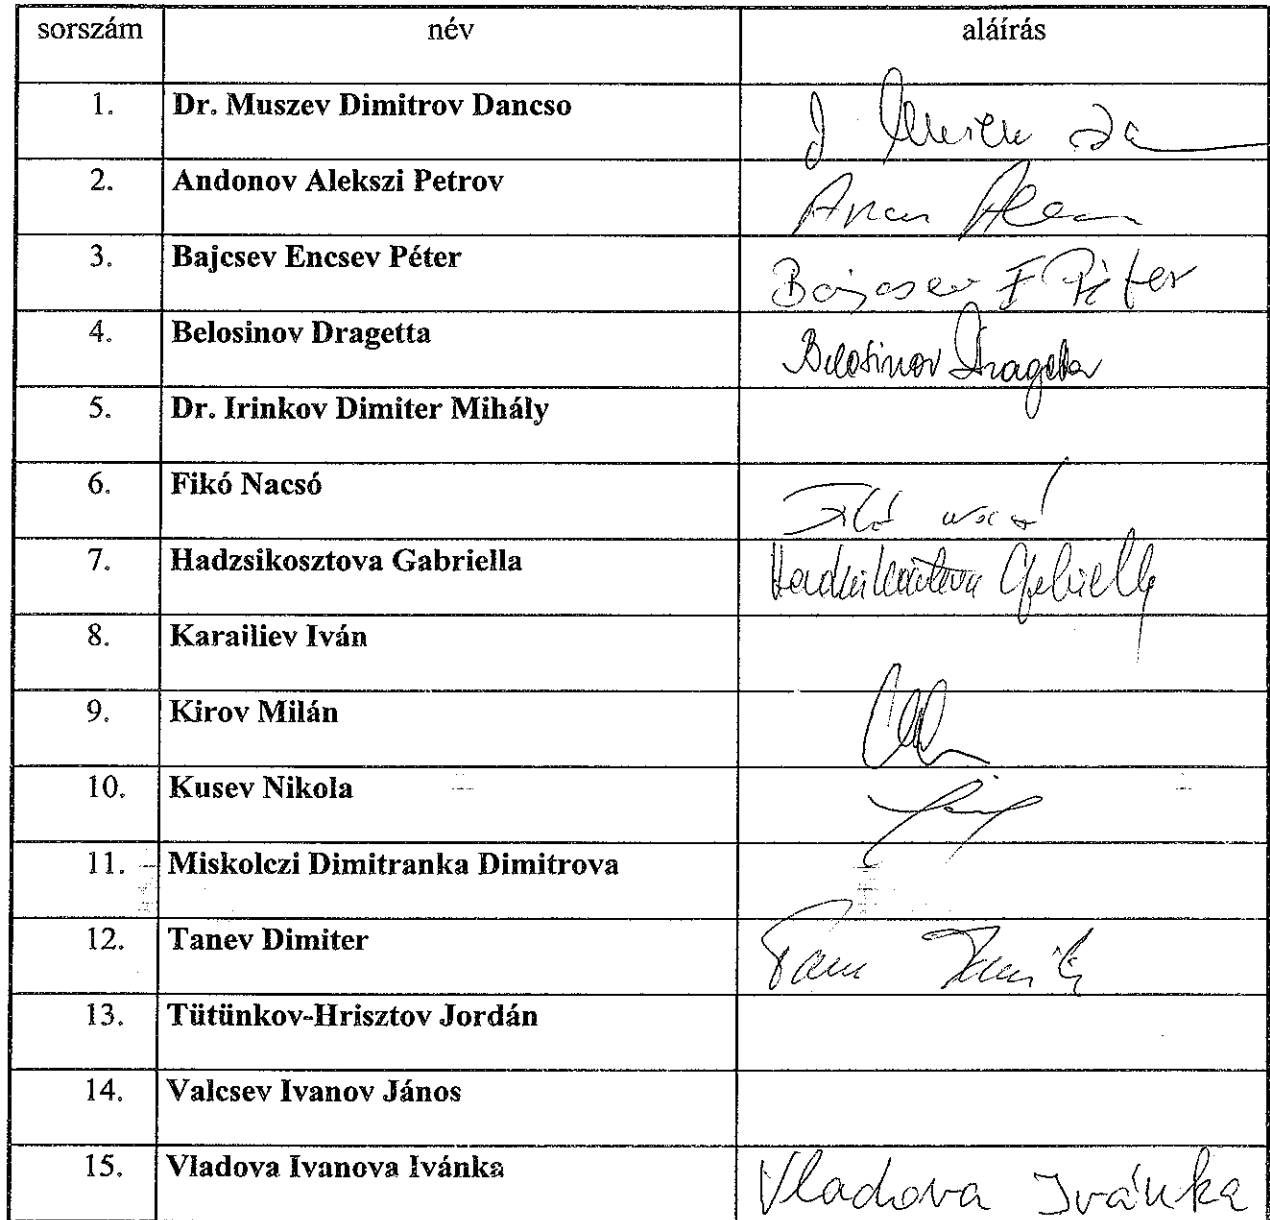 sorszám név aláírás
1. Dr. Muszev Dimitrov Dancso
2. Andonov Alekszi Petrov
3. Bajcsev Encsev Péter Bajcsev E Péter
4. Belosinov Dragetta Belosinov Dragetta
5. Dr. Irinkov Dimiter Mihály
6. Fikó Nacsó Fikó Nacsó
7. Hadzsikosztova Gabriella Hadzsikosztova Gabriella
8. Karailiev Iván
9. Kirov Milán
10. Kusev Nikola
11. Miskolczi Dimitranka Dimitrova
12. Tanev Dimiter
13. Tütünkov-Hrisztov Jordán
14. Valcsev Ivanov János
15. Vladova Ivanova Ivánka Vladova Ivánka